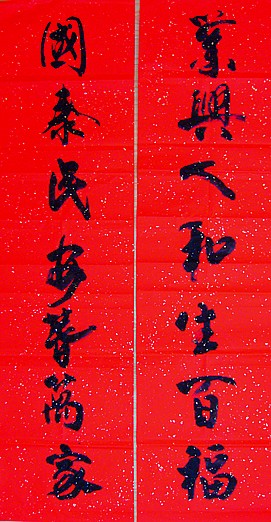 業興人和生百福
國泰民安春萬家